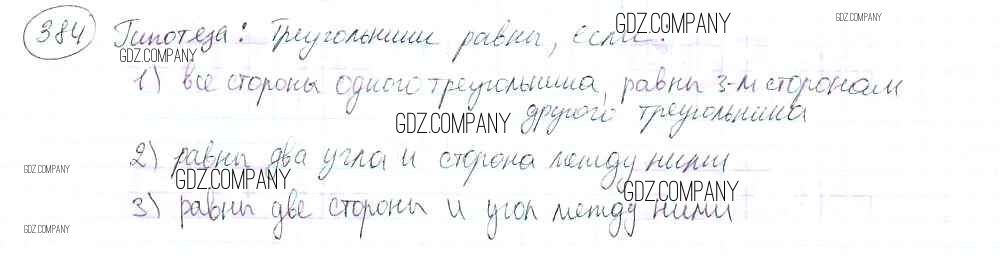 384 Гипотеза: Треугольники равны, если:
1) все стороны одного треугольника, равны 3-м сторонам
другого треугольника
2) равны два угла и сторона между ними
3) равны две стороны и угол между ними
GDZ.COMPANY
GDZ.COMPANY
GDZ.COMPANY
GDZ.COMPANY
GDZ.COMPANY
GDZ.COMPANY
GDZ.COMPANY
GDZ.COMPANY
GDZ.COMPANY
GDZ.COMPANY